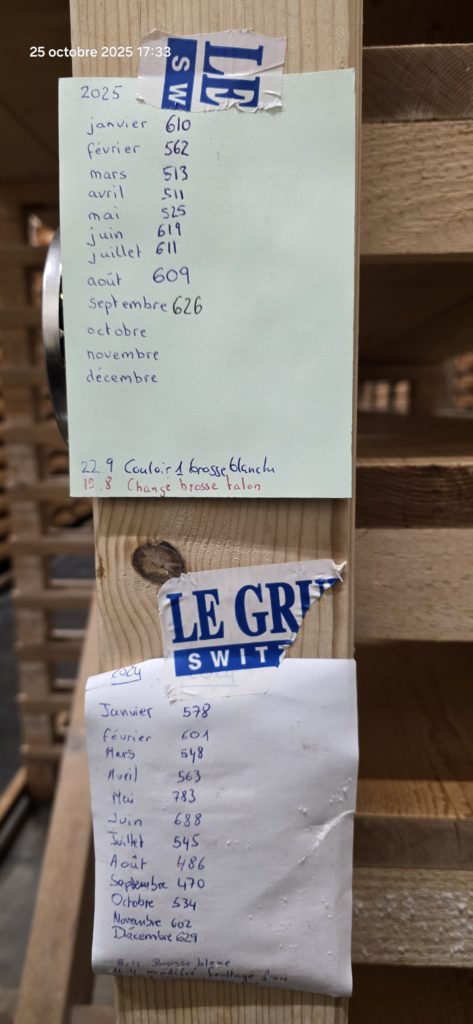 25 octobre 2025 17:33
LE
SW
2025
janvier 610
février 562
mars 513
avril 511
mai 525
juin 619
juillet 611
août 609
septembre 626
octobre
novembre
décembre
22.9 Couloir 1 brosse blanche
19.8 Change brosse talon
LE GRU
SWIT
2024
Janvier 578
février 601
Mars 548
Avril 563
Mai 783
Juin 688
Juillet 545
Août 486
Septembre 470
Octobre 534
Novembre 602
Décembre 629
8.11 Brosse bleue
modifié frottage